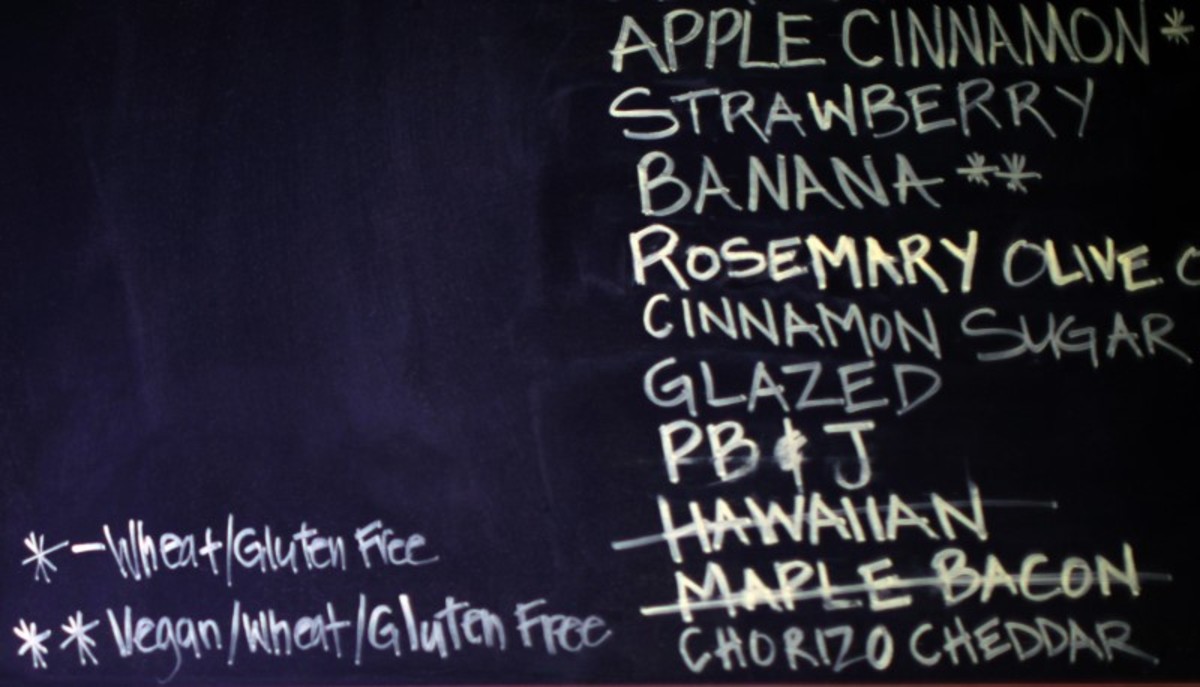 APPLE CINNAMON *
STRAWBERRY
BANANA **
ROSEMARY OLIVE
CINNAMON SUGAR
GLAZED
PB & J
HAWAIIAN
MAPLE BACON
CHORIZO CHEDDAR
* - Wheat/Gluten Free
** Vegan/Wheat/Gluten Free